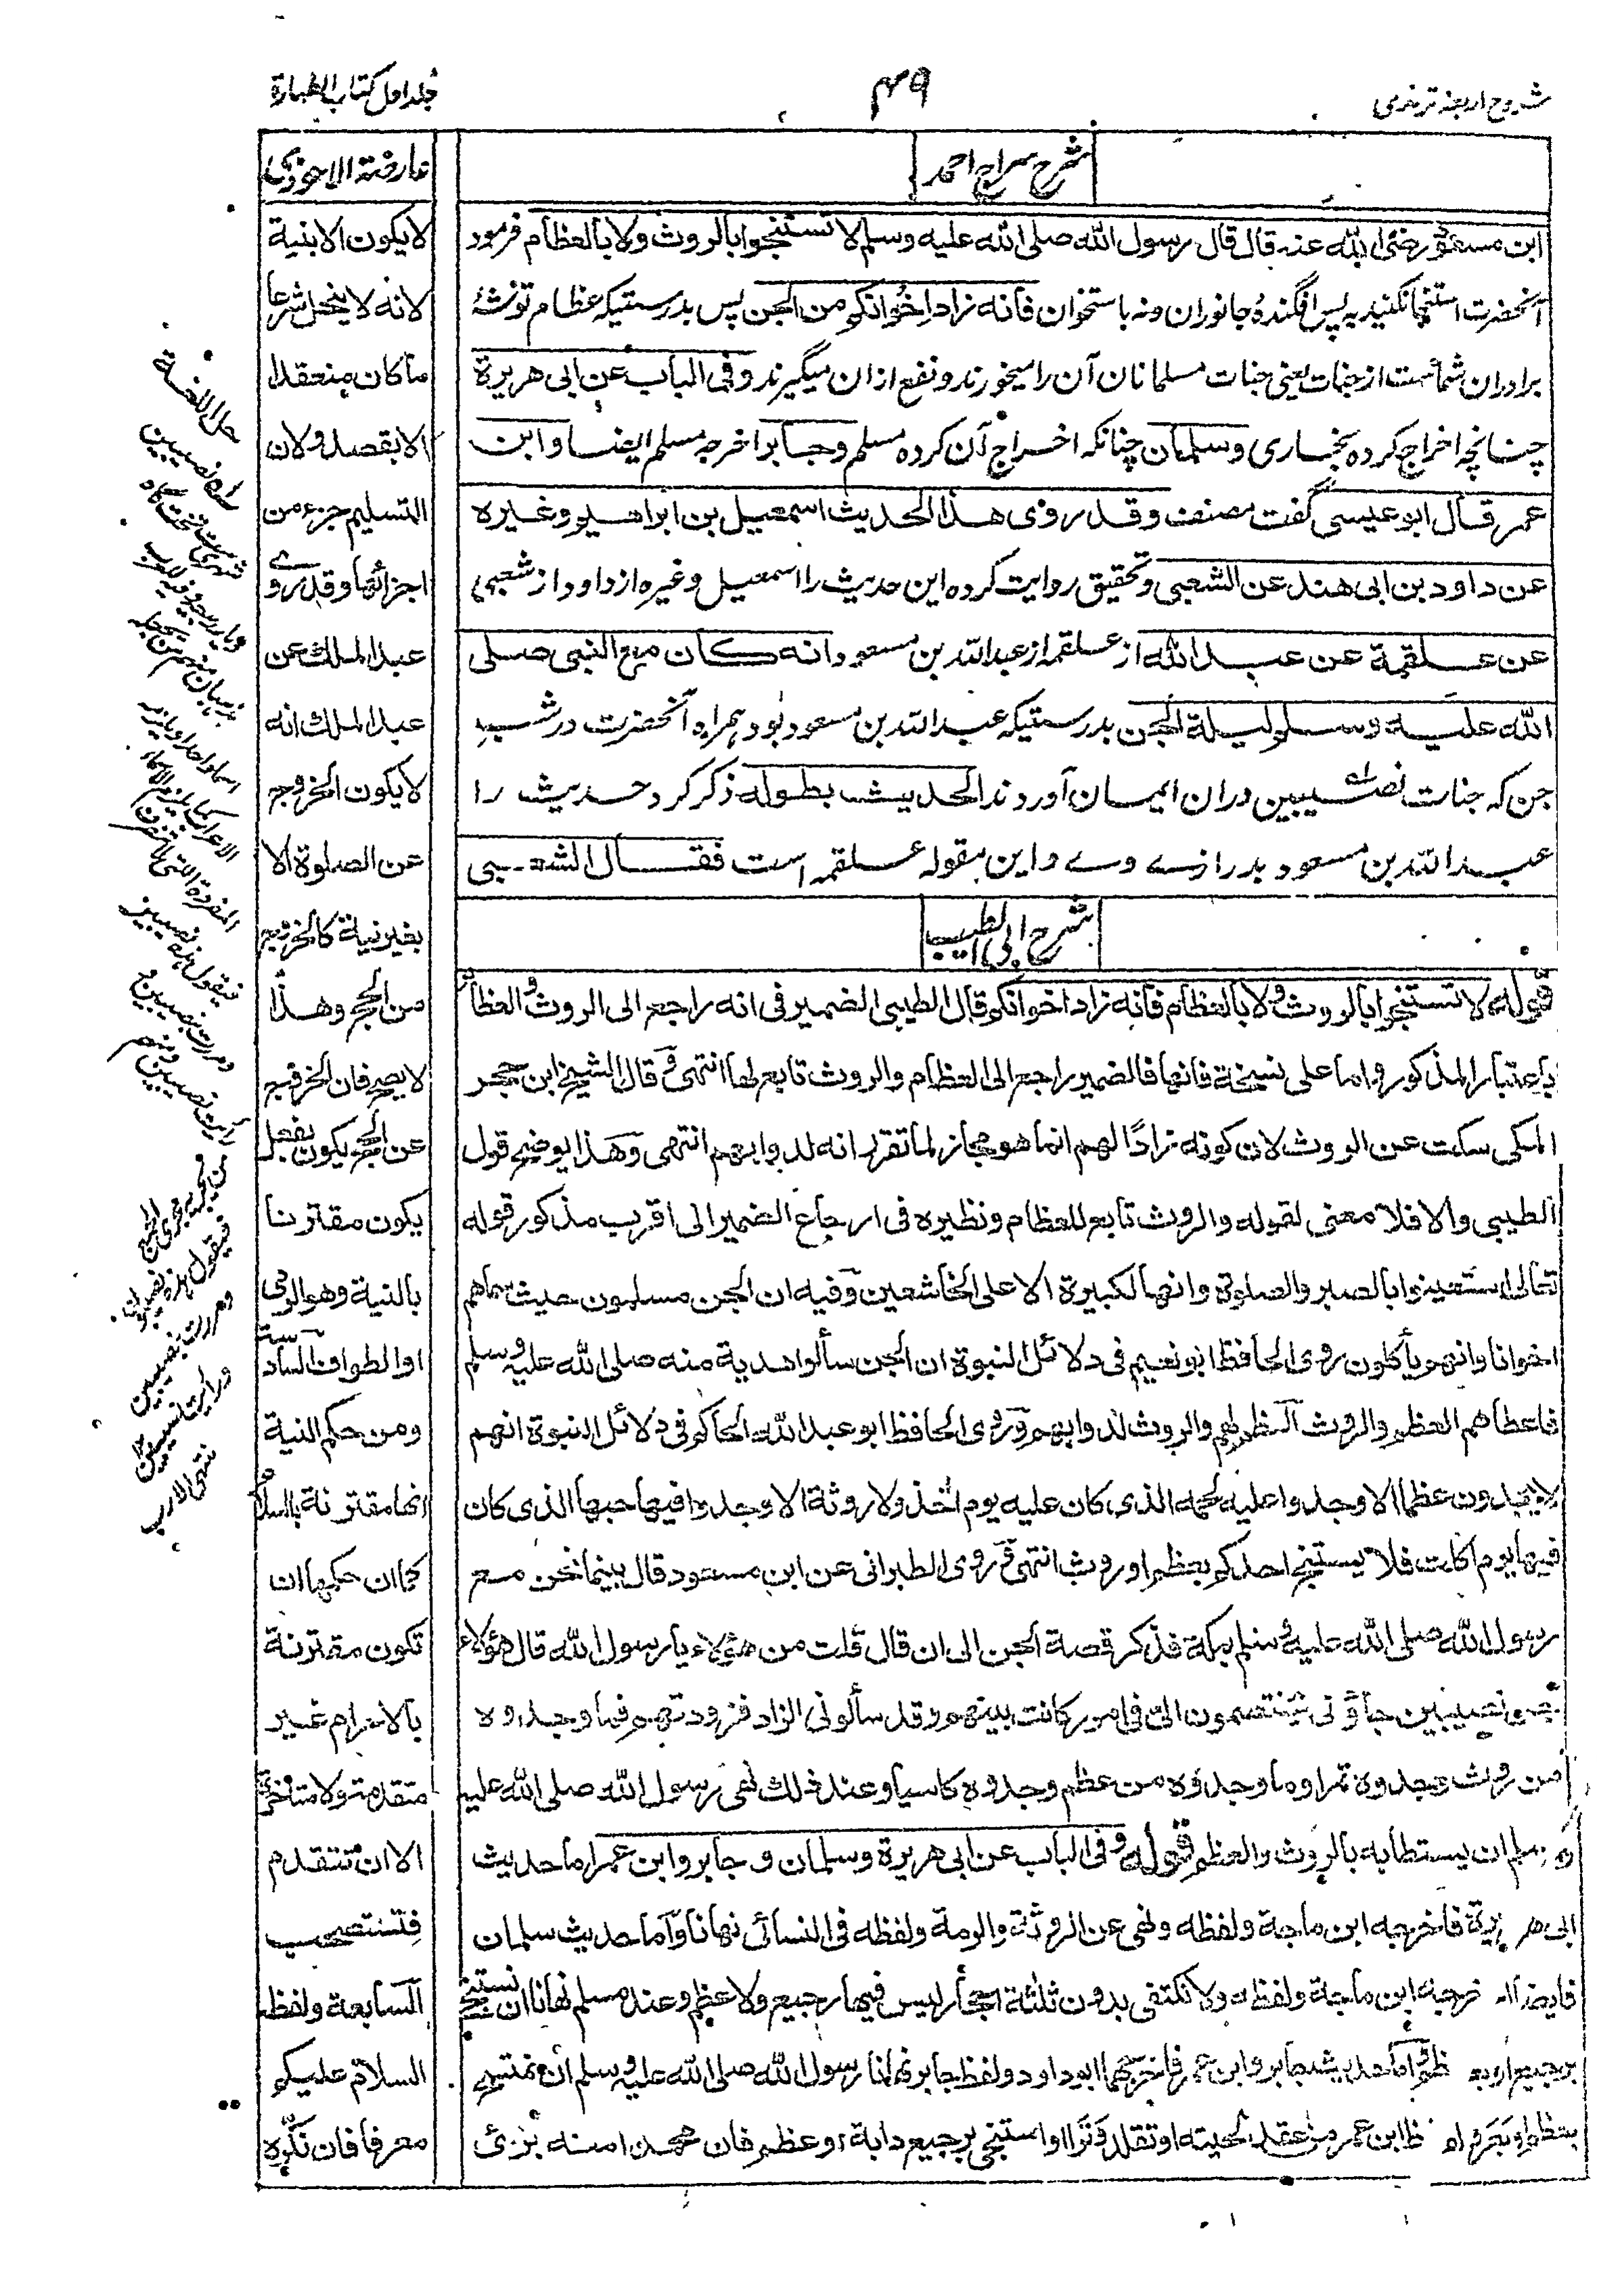 شروح اربعه ترمذی
۴۹
جلد اول کتاب الطهارة
شرح سراج احمد
ابن مسعود رضی الله عنه قال قال رسول الله صلی الله علیه وسلم لا تستنجوا بالروث ولا بالعظام فرمود
آنحضرت استنجا نکنید به پس افگندهٔ جانوران ونه باستخوان فانه زاد اخوانکم من الجن پس بدرستیکه عظام توشهٔ
برادران شماست از جنات یعنی جنات مسلمانان آن را میخورند و نفع ازان میگیرند وفی الباب عن ابی هریرة
چنانچه اخراج کرده بخاری وسلمان چنانکه اخراج آن کرده مسلم وجابر اخرجه مسلم ایضا وابن
عمر قال ابو عیسی گفت مصنف وقد روی هذا الحدیث اسمعیل بن ابراهیم وغیره
عن داود بن ابی هند عن الشعبی وتحقیق روایت کرده این حدیث را اسمعیل وغیره از داود از شعبی
عن علقمة عن عبد الله از علقمه از عبدالله بن مسعود انه کان مع النبی صلی
الله علیه وسلم لیلة الجن بدرستیکه عبدالله بن مسعود بود همراه آنحضرت در شب
جن که جنات نصیبین دران ایمان آوردند الحدیث بطوله ذکر کرد حدیث را
عبدالله بن مسعود بدرازے وے واین مقوله علقمه است فقال الشعبی
شرح ابی الطیب
قوله لا تستنجوا بالروث ولا بالعظام فانه زاد اخوانکم قال الطیبی الضمیر فی انه راجع الی الروث والعظام
باعتبار المذکور واما علی نسخة فانها فالضمیر راجع الی العظام والروث تابع لها انتهی وقال الشیخ ابن حجر
المکی سکت عن الروث لان کونه زادًا لهم انما هو مجاز لما تقرر انه لدوابهم انتهی وهذا یوضح قول
الطیبی والا فلا معنی لقوله والروث تابع للعظام ونظیره فی ارجاع الضمیر الی اقرب مذکور قوله
تعالی استعینوا بالصبر والصلوة وانها لکبیرة الا علی الخاشعین وفیه ان الجن مسلمون حیث سماهم
اخوانا وانهم یأکلون روی الحافظ ابو نعیم فی دلائل النبوة ان الجن سألوا هدیة منه صلی الله علیه وسلم
فاعطاهم العظم والروث العظم لهم والروث لدوابهم وروی الحافظ ابو عبد الله الحاکم فی دلائل النبوة انهم
لا یجدون عظما الا وجدوا علیه لحمه الذی کان علیه یوم اخذ ولا روثة الا وجدوا فیها حبها الذی کان
فیها یوم اکلت فلا یستنجی احدکم بعظم او روث انتهی وروی الطبرانی عن ابن مسعود قال بینما نحن مع
رسول الله صلی الله علیه وسلم بمکة فذکر قصة الجن الی ان قال قلت من هؤلاء یا رسول الله قال هؤلاء
جن نصیبین جاؤنی یختصمون الیّ فی امور کانت بینهم وقد سألونی الزاد فزودتهم فما وجدوه
من روث وجدوه تمرا وما وجدوه من عظم وجدوه کاسیا وعند ذلک نهی رسول الله صلی الله علیه
وسلم ان یستطاب بالروث والعظم قوله وفی الباب عن ابی هریرة وسلمان وجابر وابن عمر اما حدیث
ابی هریرة فاخرجه ابن ماجة ولفظه ونهی عن الروثة والرمة ولفظه فی النسائی نهانا واما حدیث سلمان
فایضا اخرجه ابن ماجة ولفظه ولا نکتفی بدون ثلثة احجار لیس فیها رجیع ولا عظم وعند مسلم نهانا ان نستنجی
برجیع او بعظم واما حدیث جابر وابن عمر فاخرجهما ابو داود ولفظ جابر نهانا رسول الله صلی الله علیه وسلم ان نمتسح
بعظم او بعر ابن عمر من عقد لحیته او تقلد وترا او استنجی برجیع دابة او عظم فان محمدا منه بری
عارضة الاحوذی
لا یکون الا بنیة
لانه لا ینحل شرعا
ما کان منعقدا
الا بقصد ولان
التسلیم جزء من
اجزائها وقد روے
عبد الملک عن
عبد الملک انه
لا یکون الخروج
عن الصلوة الا
بغیر نیة کالخروج
من الحج وهذا
لا یصح فان الخروج
عن الحج یکون بفعل
یکون مقترنا
بالنیة وهو الرمی
او الطواف
ومن حکم النیة
انها مقترنة بالسلام
کما ان حکمها ان
تکون مقترنة
بالاحرام غیر
متقدمة ولا متاخرة
الا ان تتقدم
فتستصحب
السابعة ولفظ
السلام علیکم
معرفا فان نکره
حل اللغة